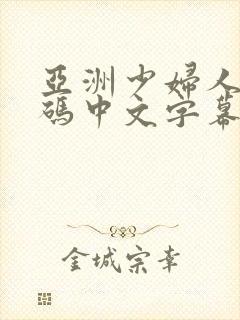 亞洲少婦人
碼中文字幕
金城宗幸